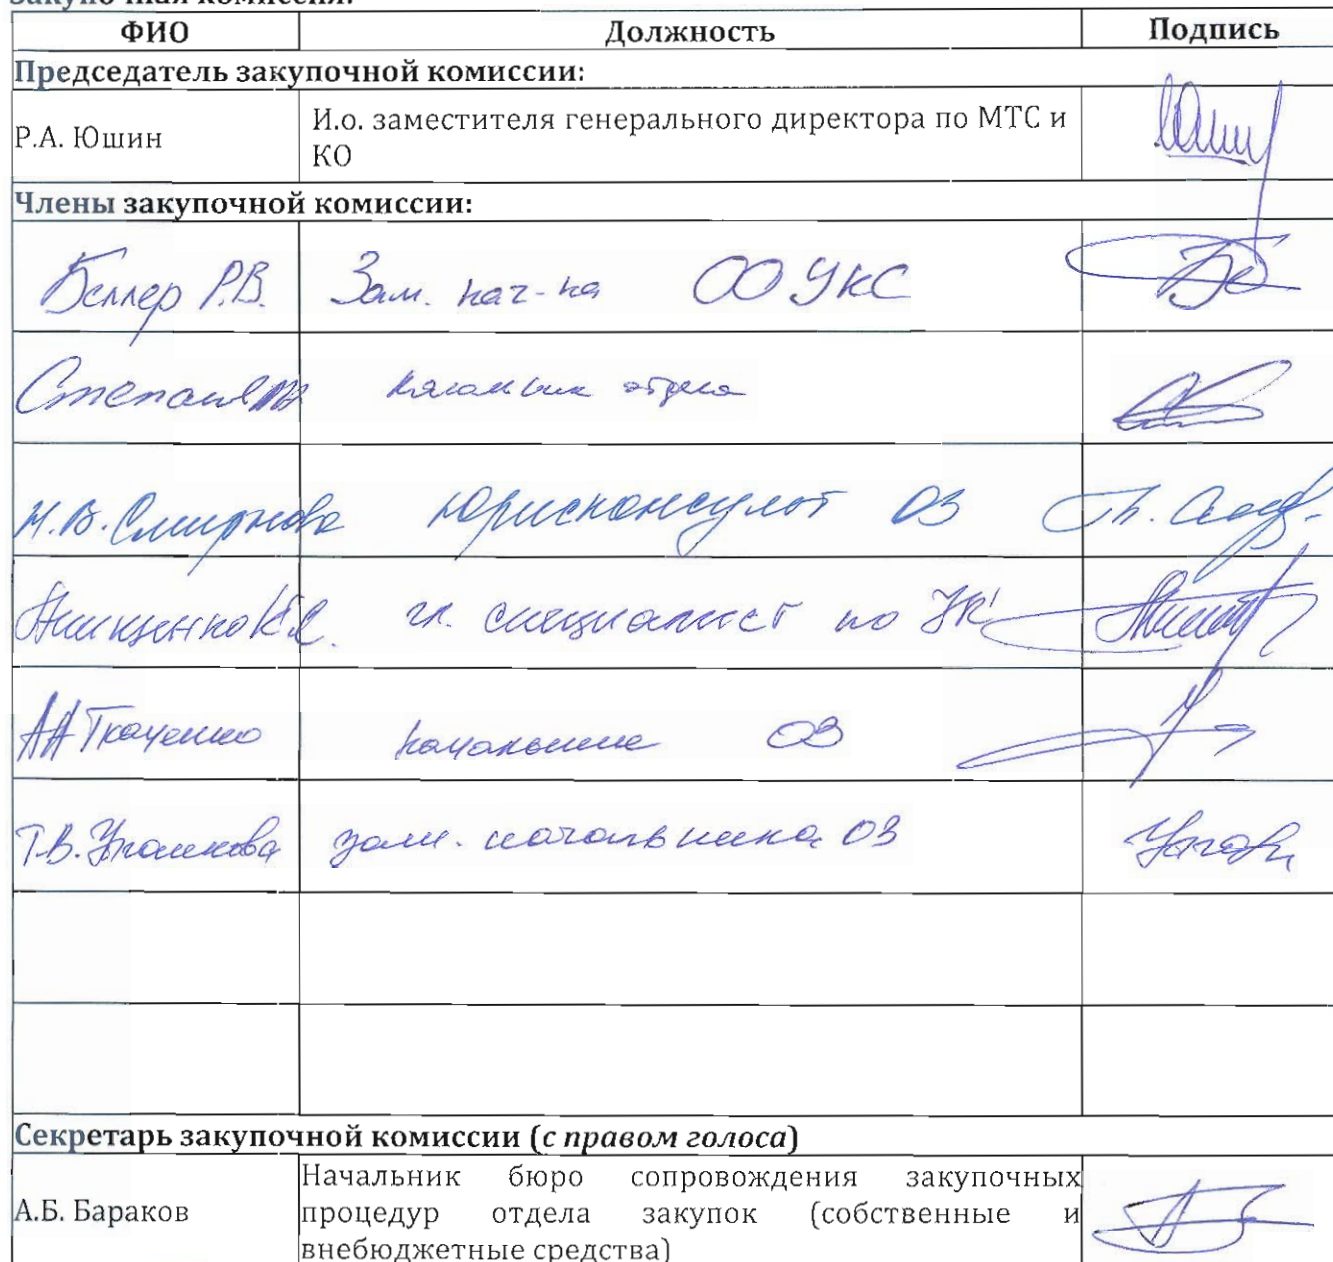 Закупочная комиссия:
ФИО Должность Подпись
Председатель закупочной комиссии:
Р.А. Юшин И.о. заместителя генерального директора по МТС и
КО
Члены закупочной комиссии:
Беллер Р.В. Зам. нач-ка ОО УКС
начальник отдела
Н.В. Смирнова Юрисконсульт ОЗ
гл. специалист по
АА Ткаченко начальник ОЗ
Т.В. зам. начальника ОЗ
Секретарь закупочной комиссии (с правом голоса)
А.Б. Бараков Начальник бюро сопровождения закупочных
процедур отдела закупок (собственные и
внебюджетные средства)